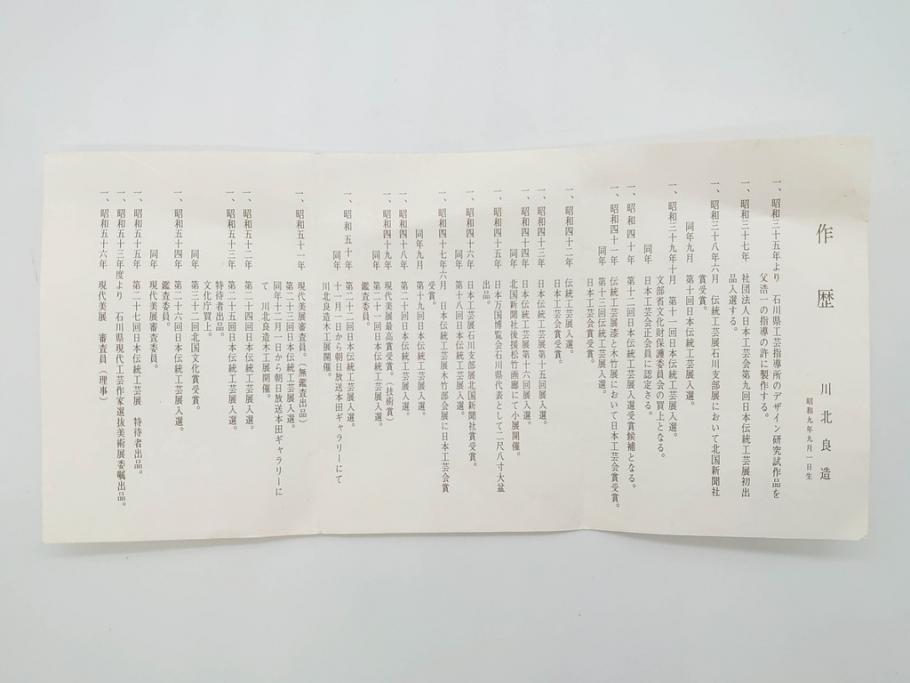 作歴
川北良造
昭和九年九月一日生
一、昭和三十五年より 石川県工芸指導所のデザイン研究試作品を
父浩一の指導の許に製作する。
一、昭和三十七年 社団法人日本工芸会第九回日本伝統工芸展初出
品入選する。
一、昭和三十八年六月 伝統工芸展石川支部展において北国新聞社
賞受賞。
同年九月 第十回日本伝統工芸展入選。
一、昭和三十九年十月 第十一回日本伝統工芸展入選。
文部省文化財保護委員会の買上となる。
同年 日本工芸会正会員に認定さる。
一、昭和四十年 第十二回日本伝統工芸展入選受賞候補となる。
一、昭和四十一年 伝統工芸展漆と木竹展において日本工芸会賞受賞。
同年 第十三回伝統工芸展入選。
日本工芸会賞受賞。
一、昭和四十二年 伝統工芸展入選。
日本工芸会賞受賞。
一、昭和四十三年 日本伝統工芸展第十五回展入選。
一、昭和四十四年 日本伝統工芸展第十六回展入選。
同年 北国新聞社後援松竹画廊にて小展開催。
一、昭和四十五年 日本万国博覧会石川県代表として二尺八寸大盆
出品。
一、昭和四十六年 日本工芸展石川支部展北国新聞社賞受賞。
同年 第十八回日本伝統工芸展入選。
一、昭和四十七年六月 日本伝統工芸展木竹部会展に日本工芸会賞
受賞。
同年九月 第十九回日本伝統工芸展入選。
一、昭和四十八年 第二十回日本伝統工芸展入選。
一、昭和四十九年 現代美展最高賞受賞。(技術賞)
同年 第二十一回日本伝統工芸展入選。
鑑査委員。
一、昭和五十年 第二十二回日本伝統工芸展入選。
同年 十一月一日から朝日放送本田ギャラリーにて
川北良造木工展開催。
一、昭和五十一年 現代美展審査員。(無鑑査出品)
第二十三回日本伝統工芸展入選。
同年十二月一日から朝日放送本田ギャラリーに
て 川北良造木工展開催。
一、昭和五十二年 第二十四回日本伝統工芸展入選。
一、昭和五十三年 第二十五回日本伝統工芸展入選。
特待者出品。
文化庁買上。
同年 第三十二回北国文化賞受賞。
一、昭和五十四年 第二十六回日本伝統工芸展入選。
鑑査委員。
同年 現代美展審査委員。
一、昭和五十五年 第二十七回日本伝統工芸展 特待者出品。
一、昭和五十三年度より 石川県現代工芸作家選抜美術展委嘱出品。
一、昭和五十六年 現代美展 審査員(理事)